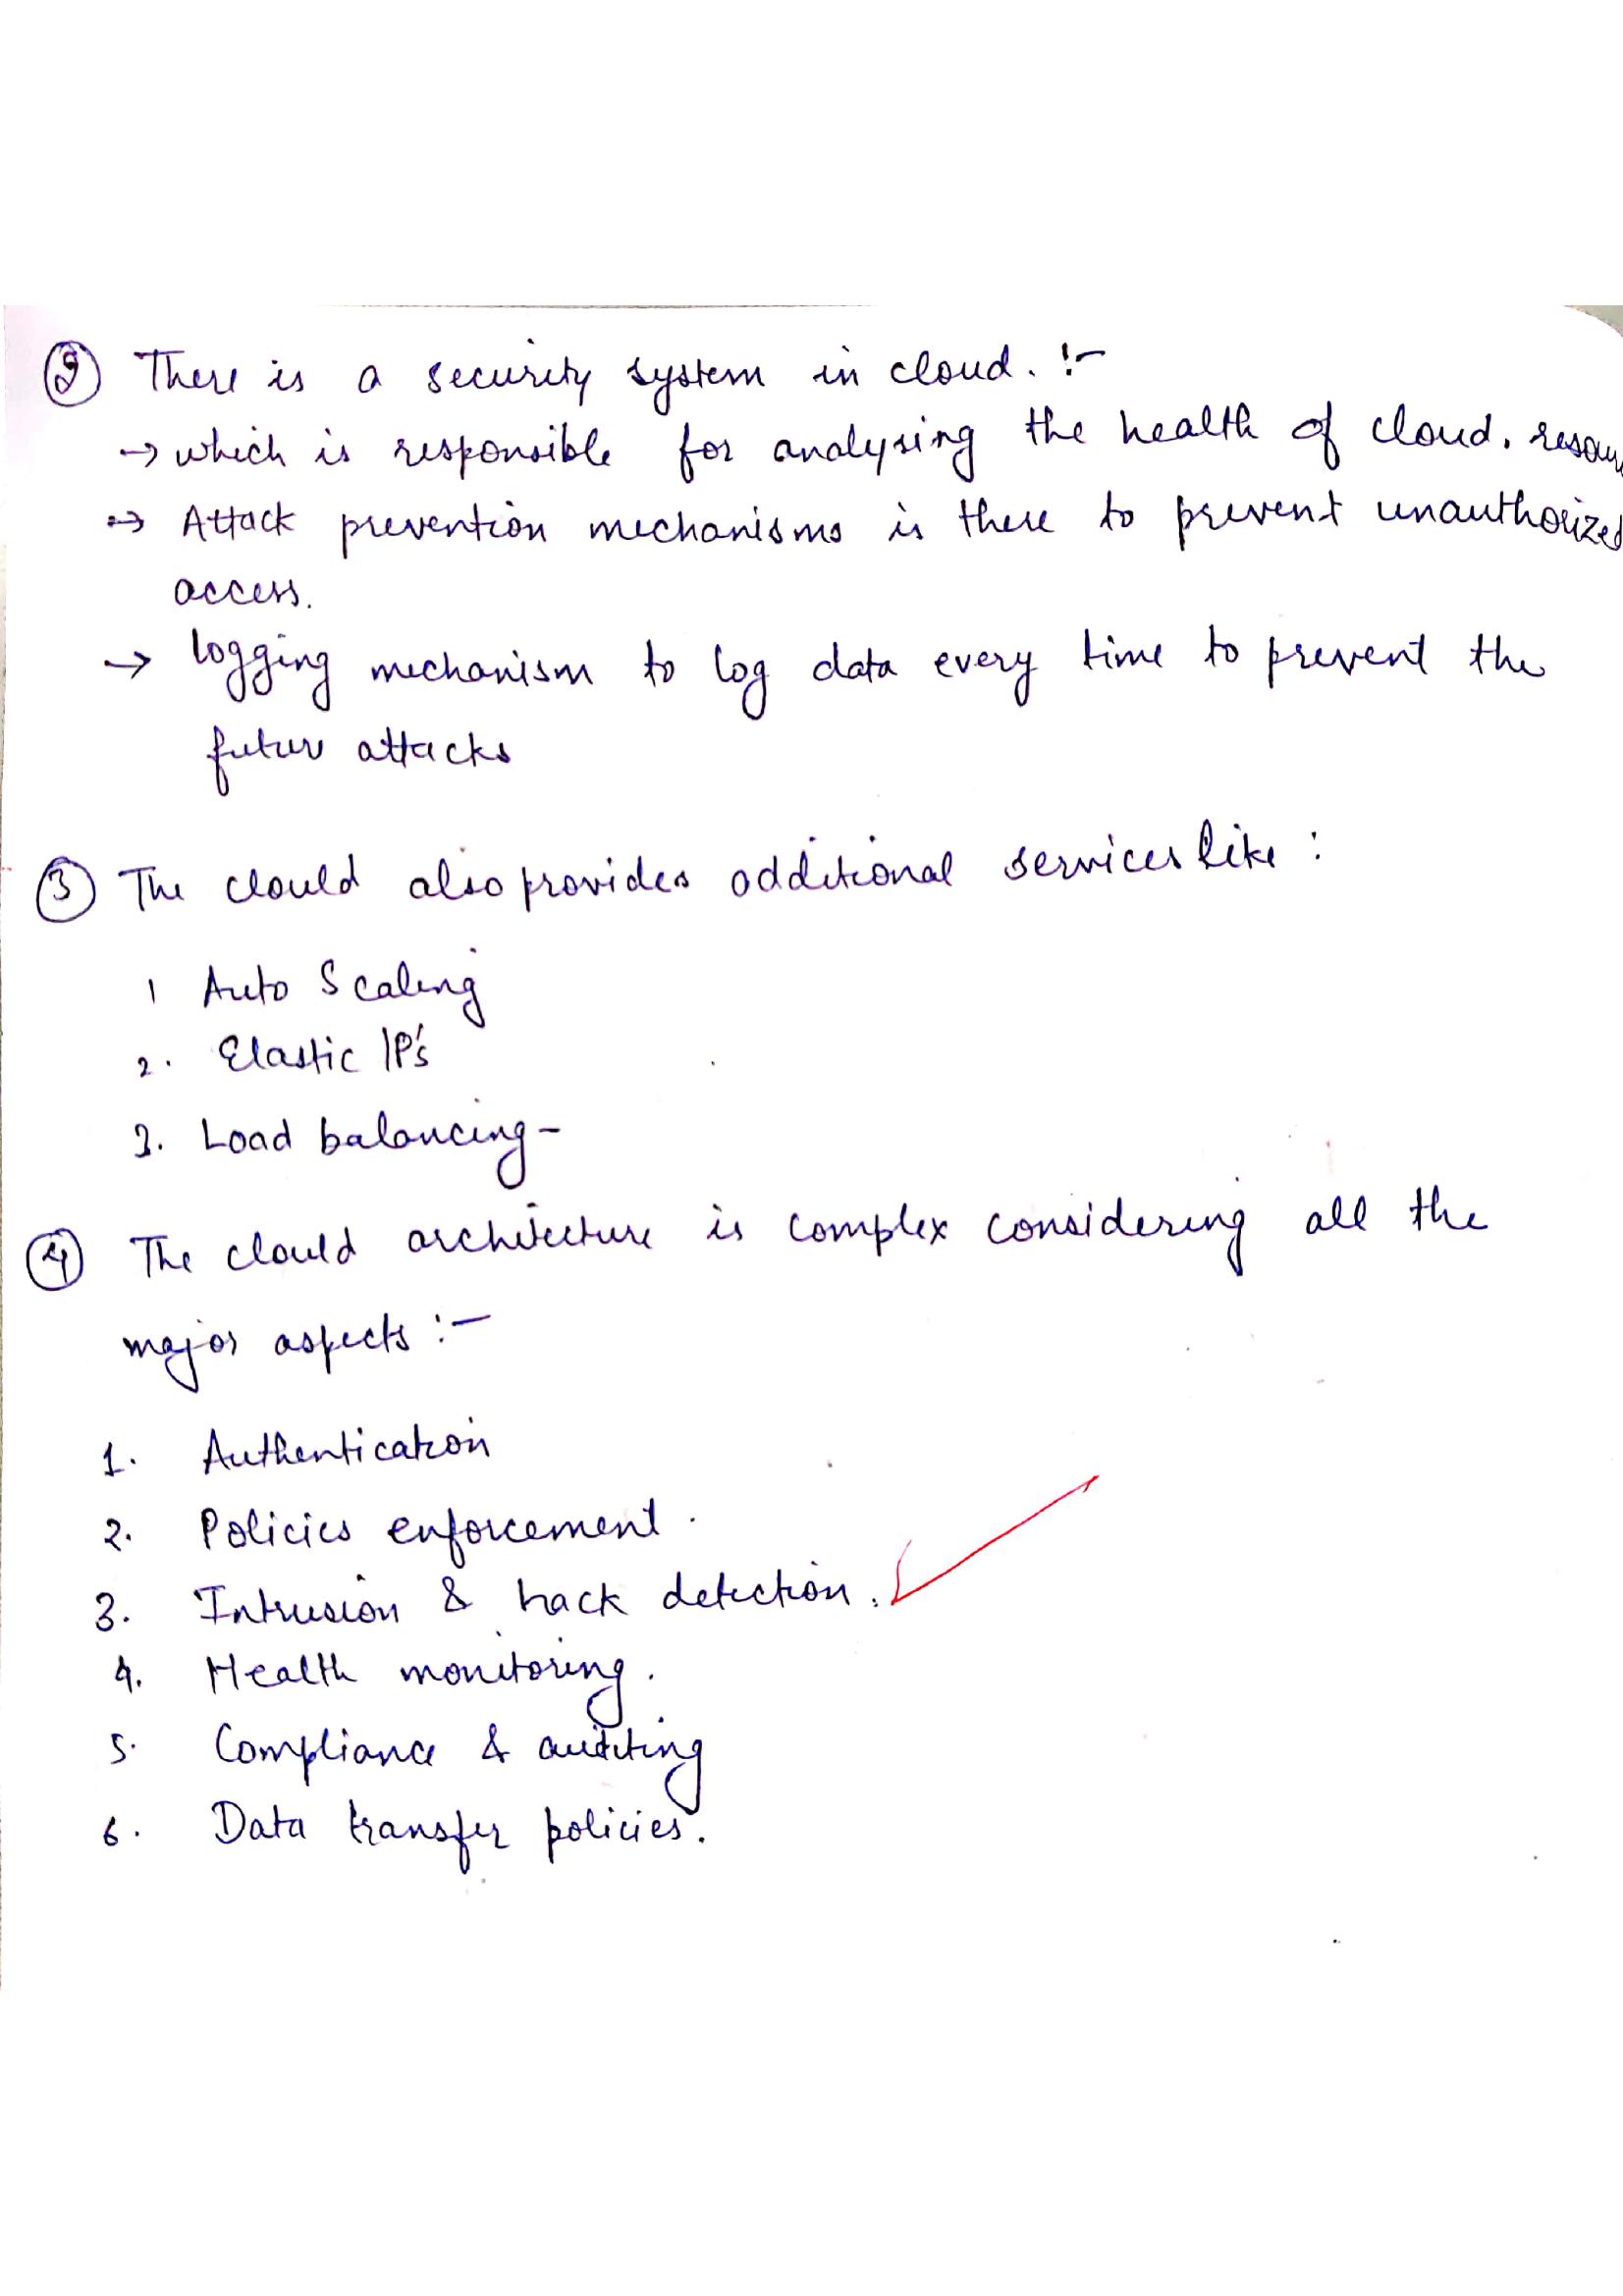 ② There is a security system in cloud. :-
→ which is responsible for analysing the health of cloud.
→ Attack prevention mechanisms is there to prevent unauthorized
access.
→ logging mechanism to log data every time to prevent the
future attacks
③ The clould also provides additional services like :
1 Auto Scaling
2. Elastic IP's
3. Load balancing -
④ The clould architecture is complex considering all the
major aspects :-
1. Authentication
2. Policies enforcement.
3. Intrusion & hack detection.
4. Health monitoring.
5. Compliance & auditing
6. Data transfer policies.